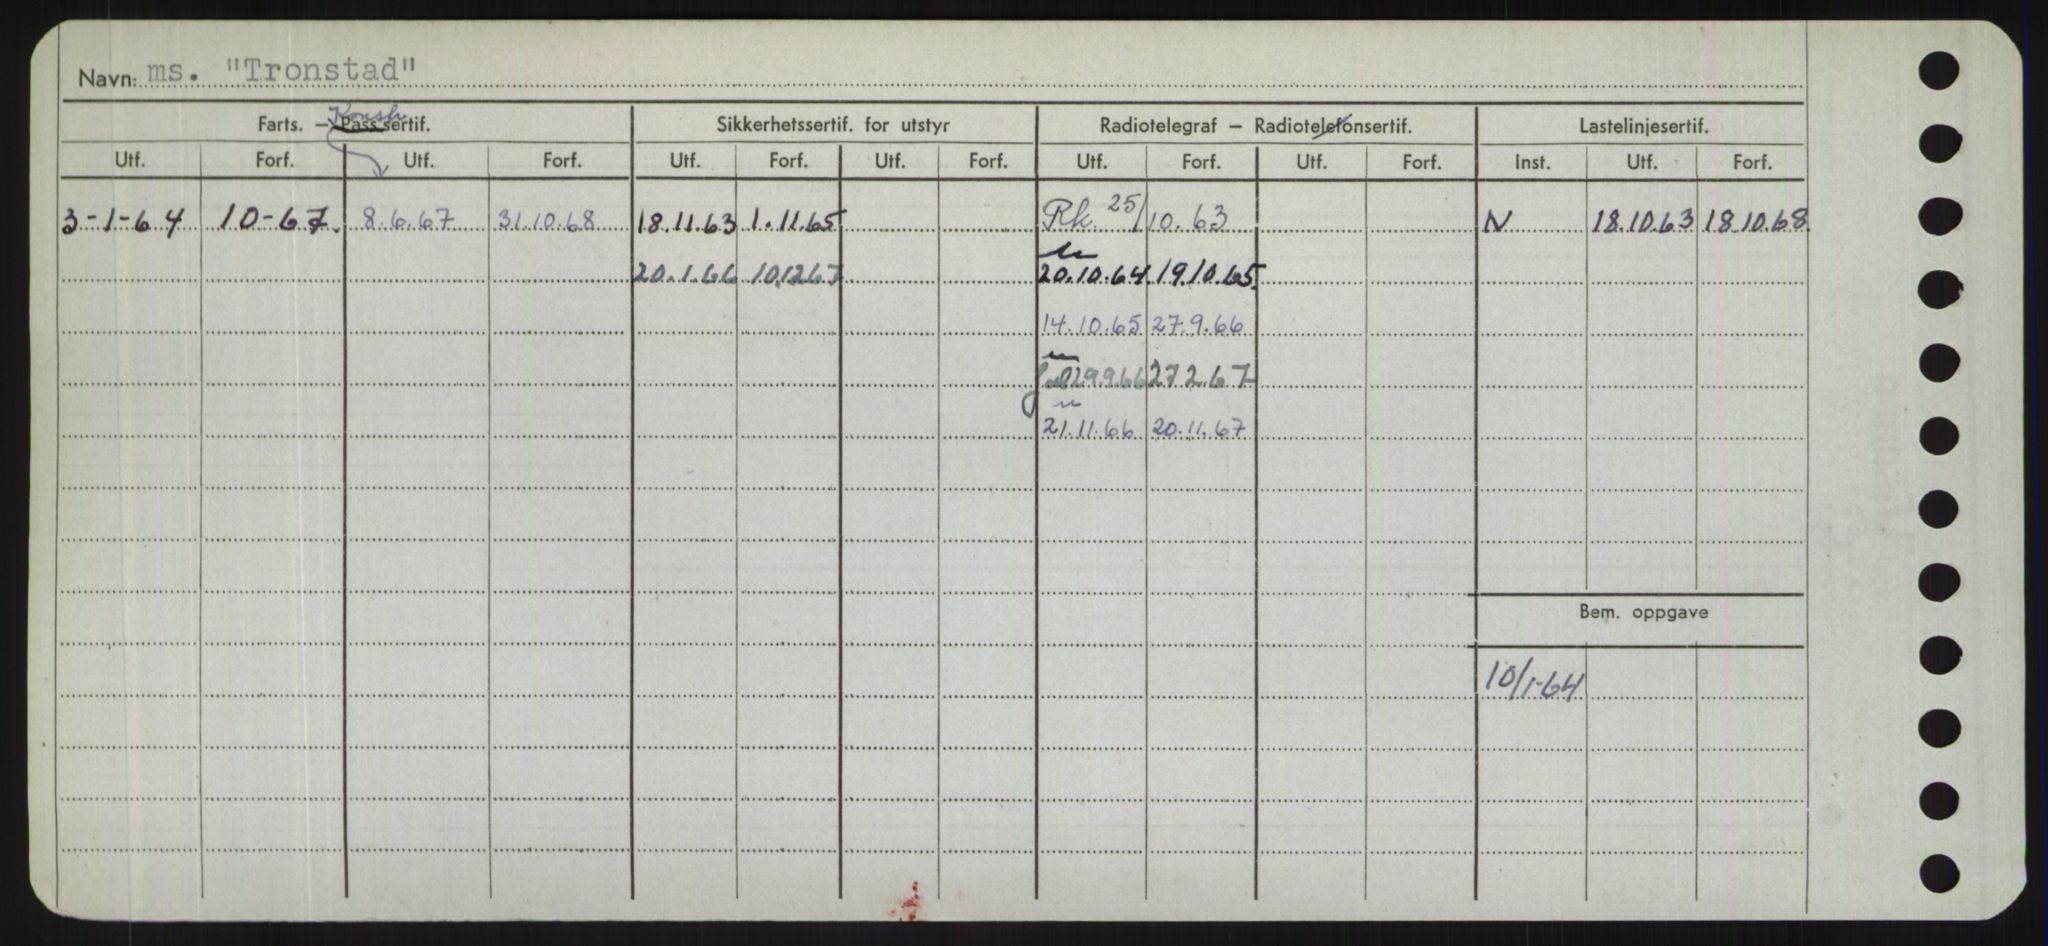 Navn: ms. "Tronstad"
Konstr.
Farts. — Passsertif. Sikkerhetssertif. for utstyr Radiotelegraf — Radiotelefonsertif. Lastelinjesertif.
Utf. Forf. Utf. Forf. Utf. Forf. Utf. Forf. Utf. Forf. Utf. Forf. Inst. Utf. Forf.
3-1-64 10-67. 8.6.67 31.10.68 18.11.63 1.11.65 Rk. 25/10.63 N 18.10.63 18.10.68
20.1.66 10.12.67 20.10.64 19.10.65
14.10.65 27.9.66
29.9.66 27.2.67
21.11.66 20.11.67
Bem. oppgave
10/1-64